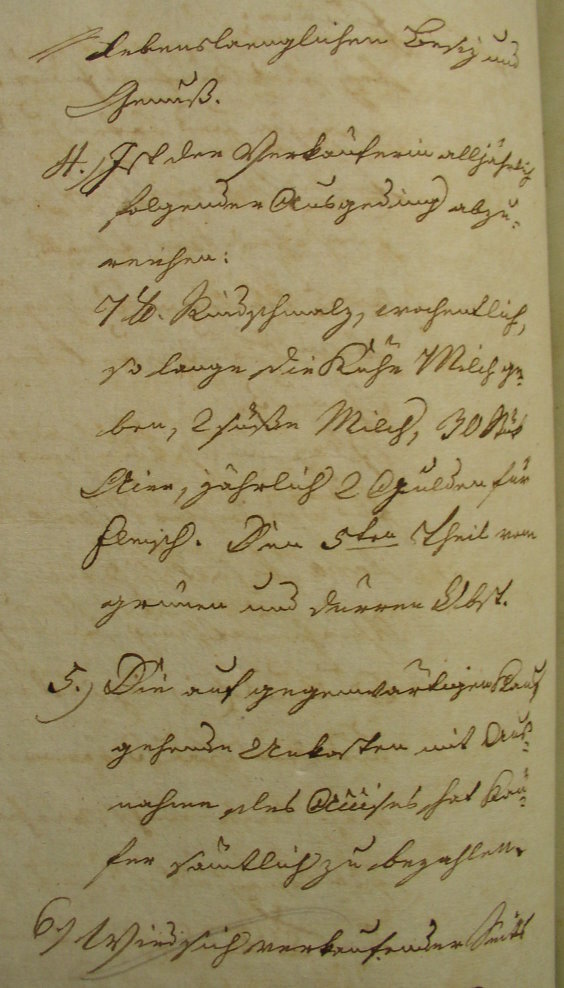 lebenslaenglichen Besiz und
Genuß.
4.) Ist der Verkäuferin alljährlich
folgender Ausgeding abzu-
reichen:
7 ℔. Rindschmalz, wochentlich,
so lange die Kühe Milch ge-
ben, 2 süße Milch, 30 Stük
Aier, jährlich 2 Gulden für
Fleisch. Den 5ten Theil vom
grünen und dürren Obst.
5.) Die auf gegenwärtigen Kauf
gehende Unkosten mit Aus-
nahme des hat Käu-
fer sämtlich zu bezahlen.
6.) Wird sich verkaufender Seits